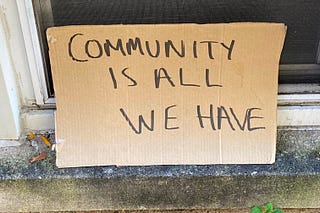 COMMUNITY
IS ALL
WE HAVE